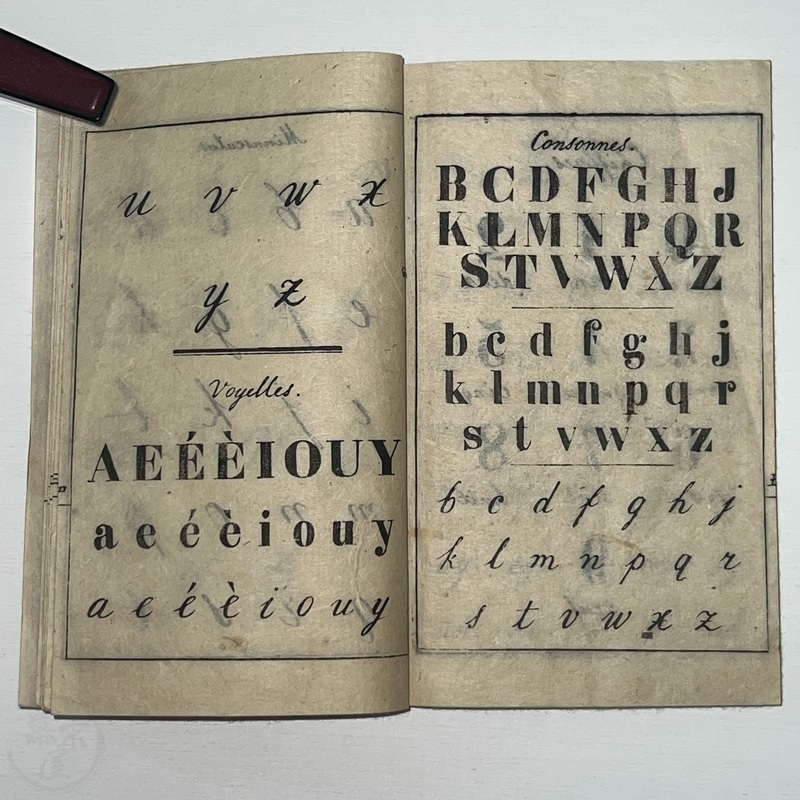 u v w x
y z
Voyelles.
AEÉÈIOUY
aeéèiouy
aeéèiouy
Consonnes.
BCDFGHJ
KLMNPQR
STVWXZ
bcdfghj
klmnpqr
stvwxz
bcdfghj
klmnpqr
stvwxz